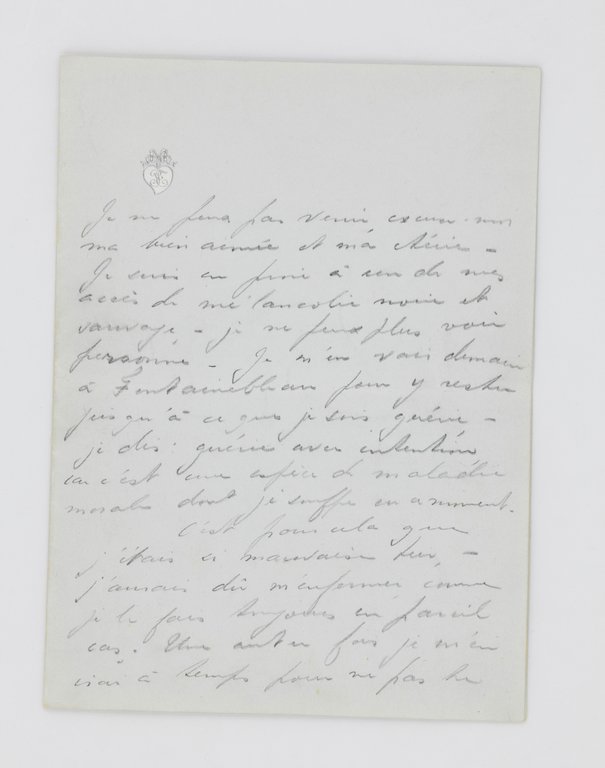 Je ne peux pas venir excuse-moi
ma bien aimée et ma chérie –
Je suis en proie à un de mes
accès de mélancolie noire et
sauvage – je ne peux plus voir
personne – Je m'en vais demain
à Fontainebleau pour y rester
jusqu'à ce que je sois guérie –
je dis : guérie avec intention
car c'est une espèce de maladie
morale dont je souffre en ce moment.
C'est pour cela que
j'étais si mauvaise hier, –
j'aurais dû m'enfermer comme
je le fais toujours en pareil
cas. Une autre fois je m'en
irai à temps pour ne pas te